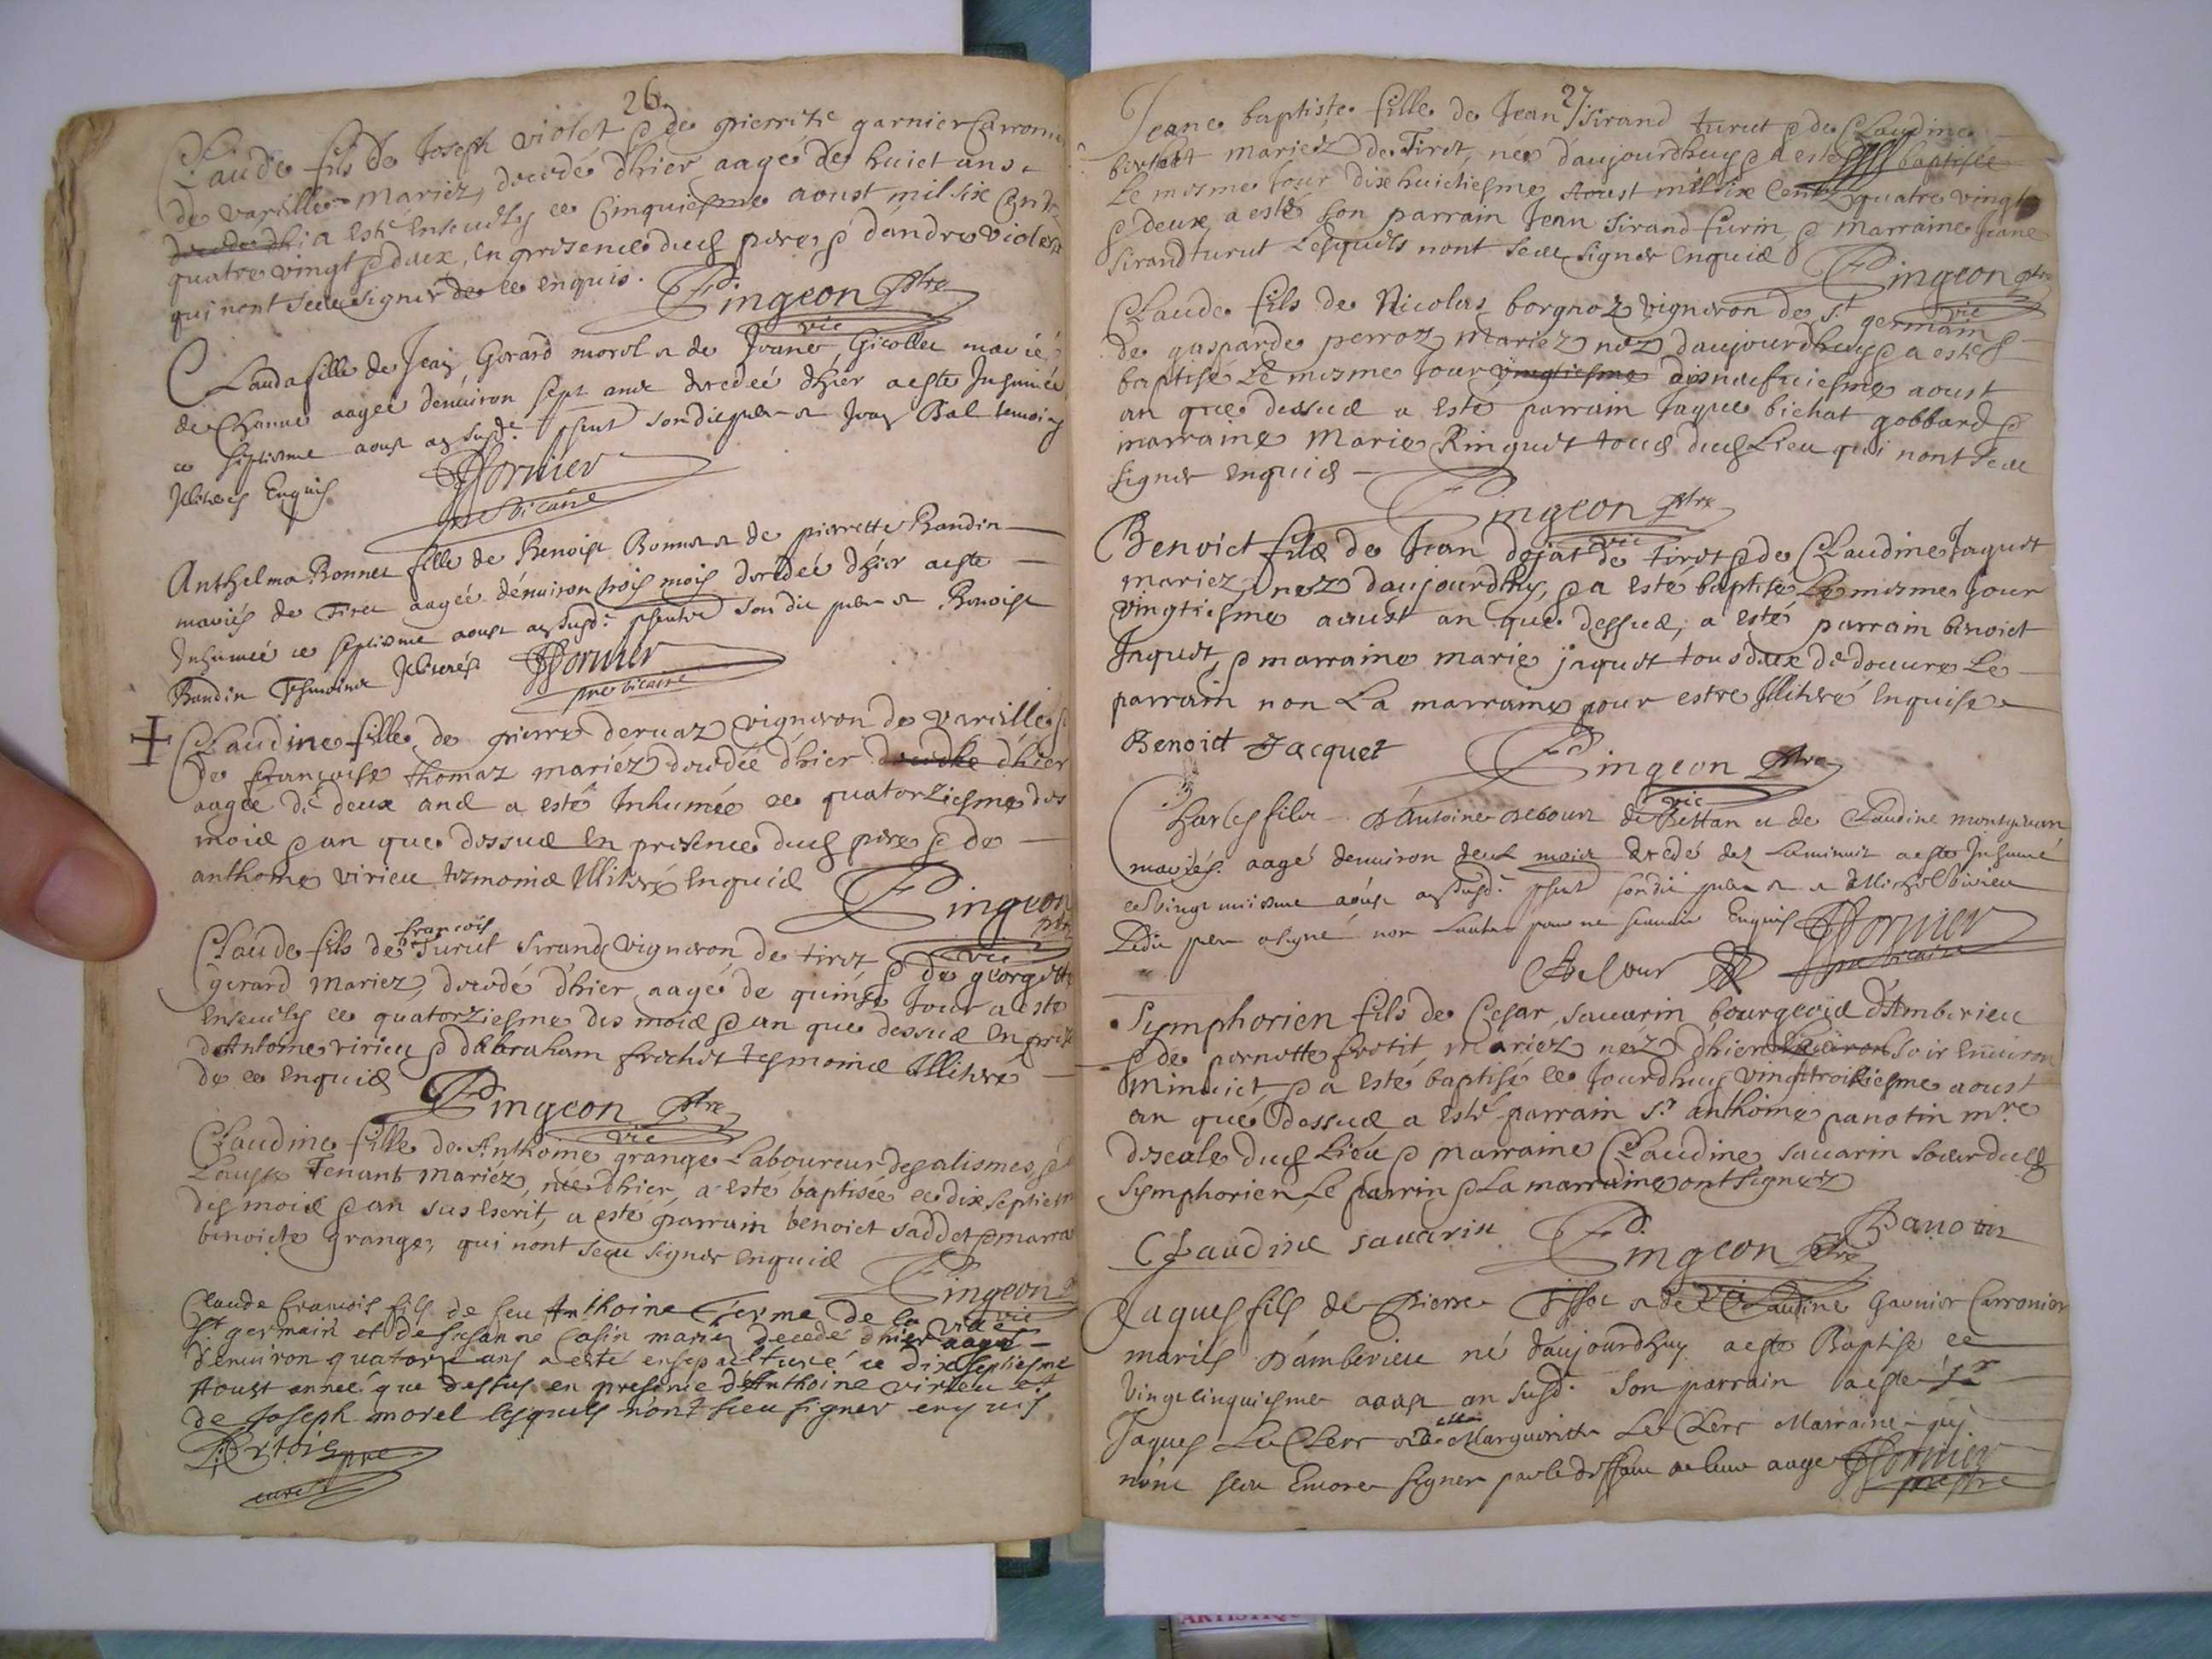 26
Claude fils de Joseph violet & de pierrette garnier Carronni
de vareille mariez, decedé dhier aagé de huict ans
a esté ensevely ce cinquiesme aoust mil six cent
quatre vingt & deux, en presence dud pere, & d'andre violet
qui nont sceu signer de ce enquis. Pingeon ptre
vic
Clauda fille de Jean Gerard morel & de Jeane Gicollet mariés
de Chanue aagée denuiron sept ans decedeé dhier a este Inhumée
ce septiesme aoust an susd. pnt son dit pere & Jean Bal temoing
Illiteres Enquis Hornier
pre vicaire
Anthelma Bonnet fille de Benoist Bonnet & de pierrette Baudin
mariés de Tiret aagée d'enuiron trois mois decedée d'hier a este
Inhumée ce septiesme aoust an susd. psents son dit pere & Benoist
Baudin Tesmoins Illiterés Hornier
pre vicaire
Claudine fille de pierre deruaz vigneron de vareille &
de françoise thomaz mariéz decedée d'hier decedée d'hier
aagée de deux ans a esté Inhumée ce quatorziesme des
mois & an que dessus en presence dud pere & de
anthoine virieu tesmoins Illiteré enquis Pingeon
ptre
vic
françois
Claude fils de Turut Sirand vigneron de tiret & de georgette
gerard mariez, decedé d'hier aagé de quinse Jour a esté
ensevely ce quatorziesme des mois & an que dessus en prese
d'Antoine virieu & d'abraham frechet tesmoins Illiteré
de ce enquis Pingeon ptre
vic
Claudine fille de Anthoine grange Laboureur des alismes, & d
Louyse Tenant mariéz, née dhier, a esté baptisée ce dix septiesm
des mois & an sus escrit, a esté parrain benoict saddet & marra
benoicte grange, qui nont sceu signer enquis
Pingeon
vic
Claude francois fils de feu Anthoine Terme de la ville
St germain et de susanne Casin mariez decedé d'hier aagé
d'enuiron quatorze ans a esté ensepaulturé ce dix septiesme
Aoust anneé que dessus en presence d'Anthoine virieu et
de Joseph morel lesquels n'ont sceu signer enquis
Bertois pre
curé
27
Jeane baptiste fille de Jean Sirand turut & de Claudine
bichat mariéz de Tiret, née d'aujourdhuy & a esté baptisée
Le mesme Jour dixhuictiesme Aoust mil six Cent quatre vingt
& deux a esté son parrain Jean Sirand furin & marraine Jeane
Sirand turut Lesquels nont sceu signer enquis
Pingeon ptre
vic
Claude fils de Nicolas borgnoz vigneron de St germain &
de gasparde perroz mariez néz daujourdhuy & a esté
baptisé Le mesme Jour vingtiesme disneufuiesme aoust
an que dessus a esté parrain Jaque bichat gobbard &
marraine Marie Ringuet tous dud Lieu qui nont sceu
signer enquis
Pingeon ptre
vic
Benoict fils de Jean dojat de tiret & de Claudine Jaquet
mariez, néz daujourdhuy, & a esté baptisé Le mesme Jour
vingtiesme aoust an que dessus, a esté parrain benoict
Jaquet, & marraine marie jaquet tous deux de douure Le
parrain non La marraine pour estre Illiteré enquise
Benoict Jacquet Pingeon ptre
vic
Charles fils d'Antoine debour de Bettan et de Claudine
mariés. aagé denuiron deux mois decedé des La minuit a este Inhumé
ce vingt uniesme aoust an susd. psent son dit pere & Michel virieu
Ledit pere a signé non Lautre pour ne scauoir Enquis Hornier
Debour pre vicaire
Symphorien fils de Cesar sauarin bourgeois d'Amberieu
& de pernette frotit, mariez néz d'hier soir enuiron
Minuict & a esté baptisé ce Jourdhuy vingttroisiesme aoust
an que Dessus a esté parrain Sr anthoine panotin mre
descole dud Lieu & marraine Claudine sauarin soeur dud
Symphorien, Le parrin & La marraine ont signez
Claudine sauarin Panotin
Pingeon ptre
vic
Jaques fils de Pierre Tissot & de Claudine Garnier Carronier
mariés d'ambérieu né d'aujourdhuy a este Baptisé ce
vingtcinquiesme aoust an susd. Son parrain a este Sr
Jaques Le Clerc & delle Marguerite Le Clerc Marraine qui
nont sceu Encore signer par le deffaut de leur aage Hornier
prestre
ARTISTIQU